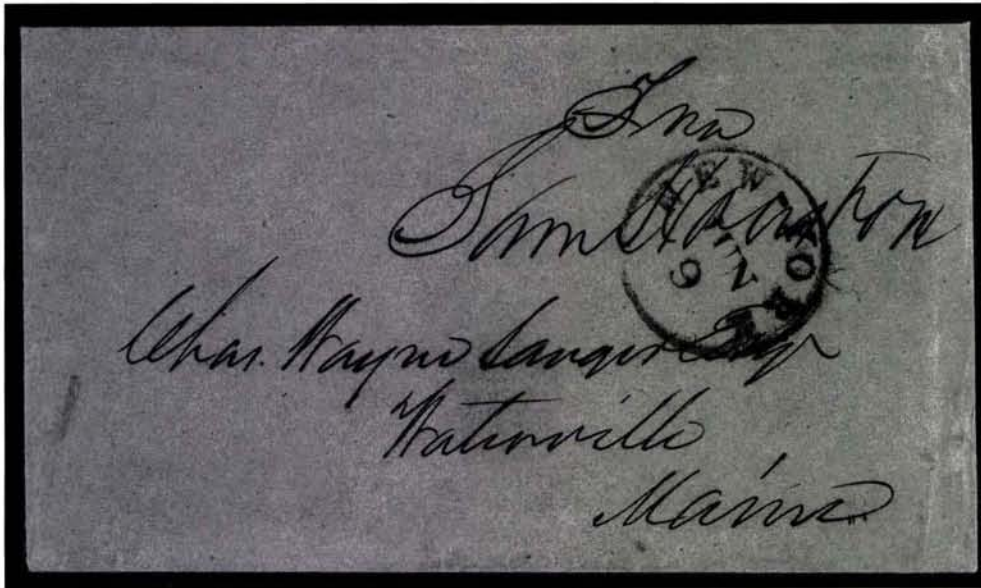 Free
Sam Houston
NEW YORK
Chas. Wayne Sanger Esqr
Waterville
Maine